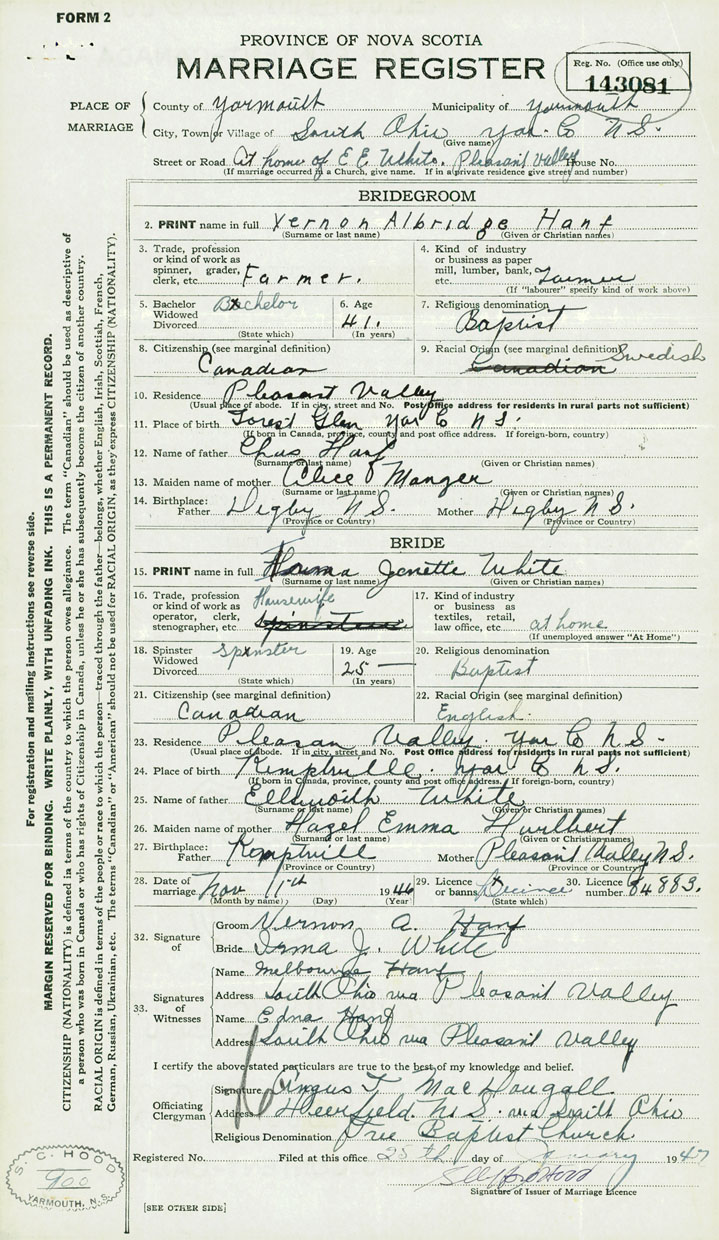 FORM 2
PROVINCE OF NOVA SCOTIA
MARRIAGE REGISTER
Reg. No. (Office use only)
143081
PLACE OF MARRIAGE
County of Yarmouth Municipality of Yarmouth
City, Town or Village of South Ohio Yar. Co N.S.
(Give name)
Street or Road At home of E E White. Pleasant Valley House No.
(If marriage occurred in a Church, give name. If in a private residence give street and number)
BRIDEGROOM
2. PRINT name in full Vernon Albridge Hanf
(Surname or last name) (Given or Christian names)
3. Trade, profession or kind of work as spinner, grader, clerk, etc. Farmer.
4. Kind of industry or business as paper mill, lumber, bank, etc. Farmer
(If "labourer" specify kind of work above)
5. Bachelor Widowed Divorced Bachelor
(State which)
6. Age 41.
(In years)
7. Religious denomination Baptist
8. Citizenship (see marginal definition) Canadian
9. Racial Origin (see marginal definition) Swedish
Canadian
10. Residence Pleasant Valley
(Usual place of abode. If in city, street and No. Post Office address for residents in rural parts not sufficient)
11. Place of birth Forest Glen Yar Co N S.
(If born in Canada, province, county and post office address. If foreign-born, country)
12. Name of father Chas Hanf
(Surname or last name) (Given or Christian names)
13. Maiden name of mother Alice Manger
(Surname or last name) (Given or Christian names)
14. Birthplace: Father Digby N.S. Mother Digby N.S.
(Province or Country) (Province or Country)
BRIDE
15. PRINT name in full Irma Jenette White
(Surname or last name) (Given or Christian names)
16. Trade, profession or kind of work as operator, clerk, stenographer, etc. Housewife
Spinster
17. Kind of industry or business as textiles, retail, law office, etc. at home
(If unemployed answer "At Home")
18. Spinster Widowed Divorced Spinster
(State which)
19. Age 25
(In years)
20. Religious denomination Baptist
21. Citizenship (see marginal definition) Canadian
22. Racial Origin (see marginal definition) English.
23. Residence Pleasan Valley Yar Co N S.
(Usual place of abode. If in city, street and No. Post Office address for residents in rural parts not sufficient)
24. Place of birth Kemptville Yar Co N.S.
(If born in Canada, province, county and post office address. If foreign-born, country)
25. Name of father Ellsworth White
(Surname or last name) (Given or Christian names)
26. Maiden name of mother Hazel Emma Hurlbert
(Surname or last name) (Given or Christian names)
27. Birthplace: Father Kemptvill Mother Pleasant Valley N.S.
(Province or Country) (Province or Country)
28. Date of marriage Nov 11th 1946
(Month by name) (Day) (Year)
29. Licence or banns
(State which)
30. Licence number 84883.
32. Signature of
Groom Vernon A. Hanf
Bride Irma J. White
33. Signatures of Witnesses
Name Melbourne Hanf
Address South Ohio via Pleasant Valley
Name Edna Hanf
Address South Ohio via Pleasant Valley
I certify the above stated particulars are true to the best of my knowledge and belief.
Officiating Clergyman
Signature Angus T. MacDougall
Address Deerfield N.S. via South Ohio
Religious Denomination Free Baptist Church
Registered No. Filed at this office 25th day of January 1947
Signature of Issuer of Marriage Licence
[SEE OTHER SIDE]
S. C. HOOD
900
YARMOUTH, N.S.
For registration and mailing instructions see reverse side.
MARGIN RESERVED FOR BINDING. WRITE PLAINLY, WITH UNFADING INK. THIS IS A PERMANENT RECORD.
CITIZENSHIP (NATIONALITY) is defined in terms of the country to which the person owes allegiance. The term "Canadian" should be used as descriptive of
a person who was born in Canada or who has rights of Citizenship in Canada, unless he or she has subsequently become the citizen of another country.
RACIAL ORIGIN is defined in terms of the people or race to which the person—traced through the father—belongs, whether English, Irish, Scottish, French,
German, Russian, Ukrainian, etc. The terms "Canadian" or "American" should not be used for RACIAL ORIGIN, as they express CITIZENSHIP (NATIONALITY).